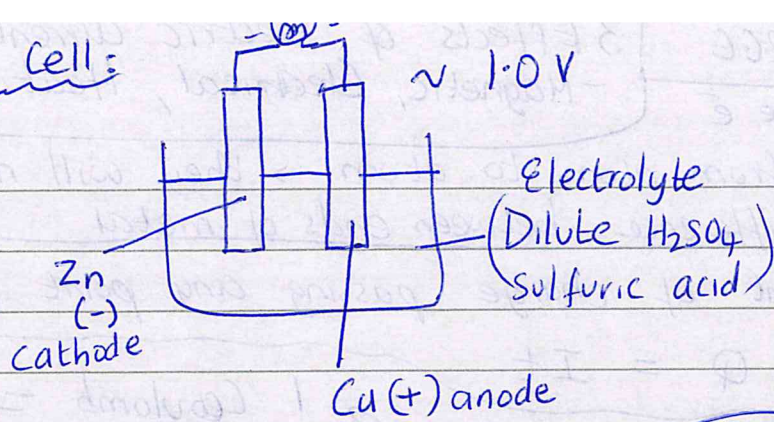 Cell:
~ 1.0 V
Electrolyte
(Dilute H₂SO₄
Sulfuric acid)
Zn
(-)
Cathode
Cu (+) anode